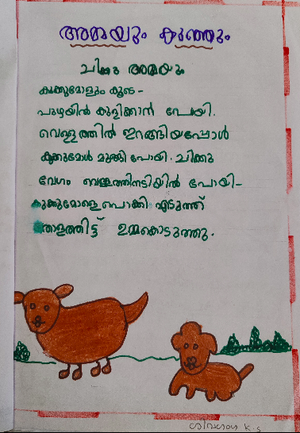 അമ്മയും കുഞ്ഞും
ചിക്കു അമ്മയും
കുക്കുമോളും കൂടെ-
പുഴയിൽ കുളിക്കാൻ പോയി.
വെള്ളത്തിൽ ഇറങ്ങിയപ്പോൾ
കുക്കുമോൾ മുങ്ങി പോയി. ചിക്കു
വേഗം വെള്ളത്തിനടിയിൽ പോയി-
കുക്കുമോളെപൊക്കി എടുത്ത്
തോളത്തിട്ട് ഉമ്മകൊടുത്തു.
K.S